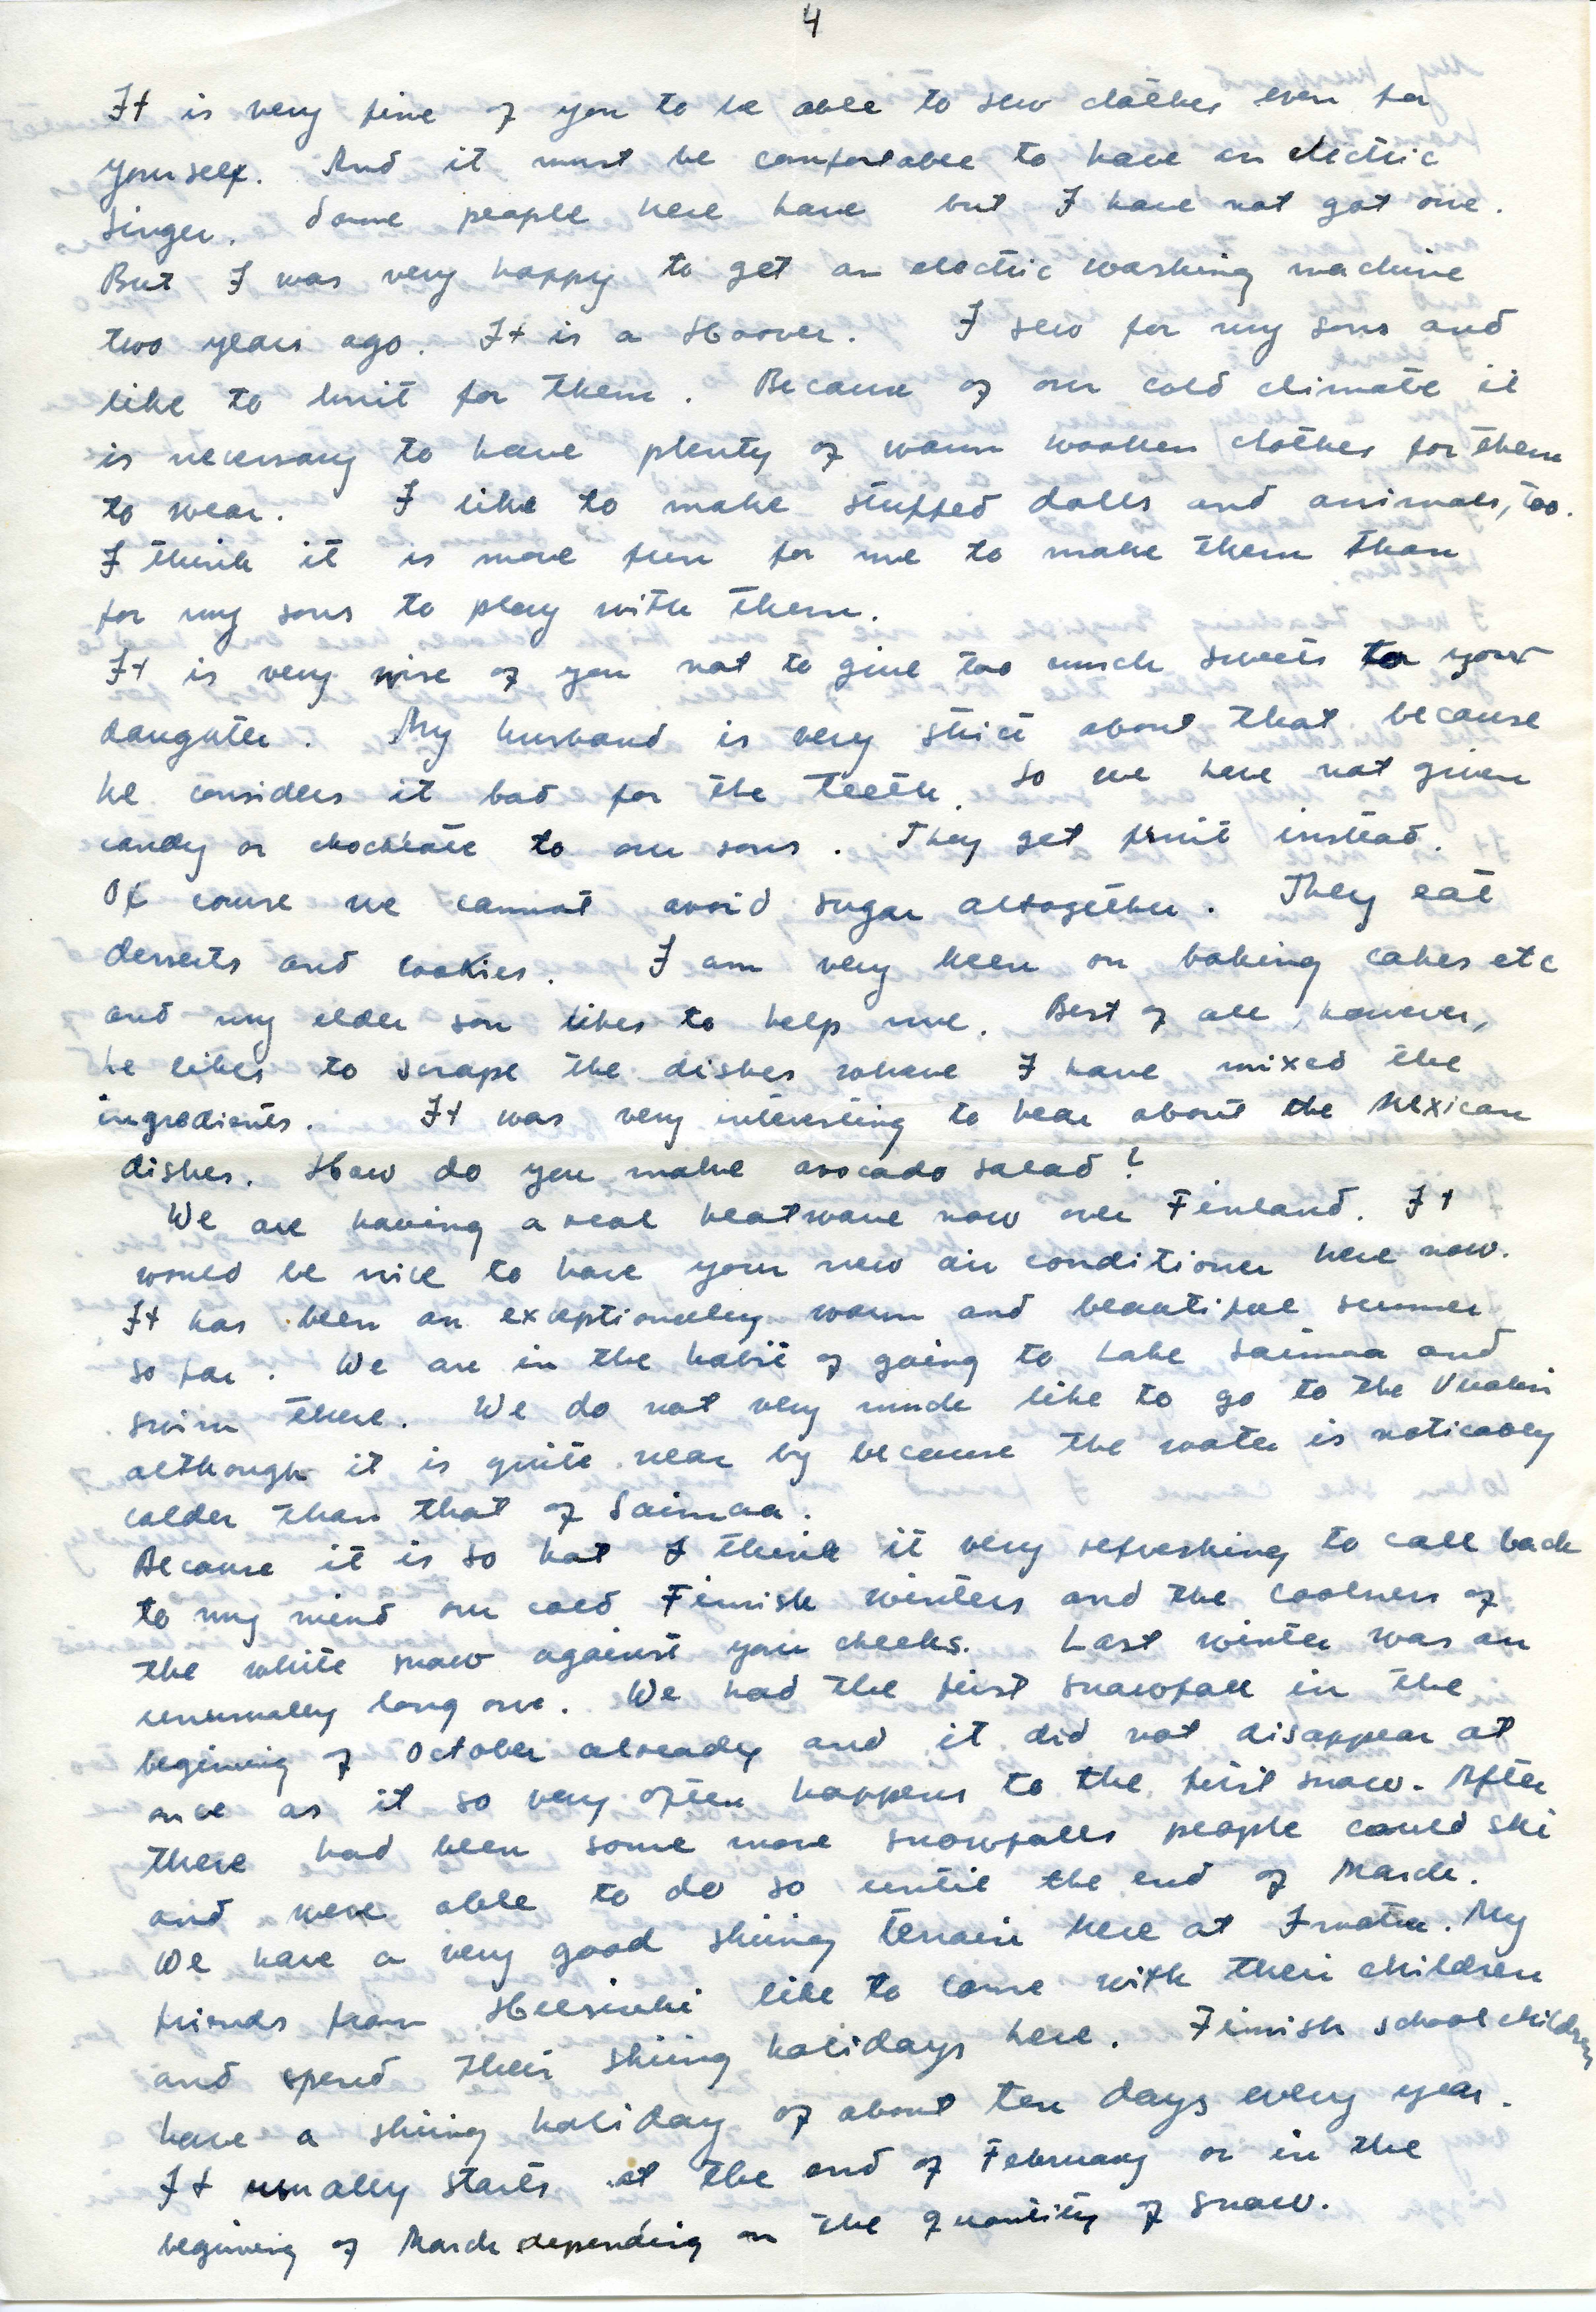 4
It is very fine of you to be able to sew clothes even for
yourself. And it must be comfortable to have an electric
Singer. Some people here have but I have not got one.
But I was very happy to get an electric washing machine
two years ago. It is a Hoover. I sew for my sons and
like to knit for them. Because of our cold climate it
is necessary to have plenty of warm woollen clothes for them
to wear. I like to make stuffed dolls and animals, too.
I think it is more fun for me to make them than
for my sons to play with them.
It is very wise of you not to give too much sweets to your
daughter. My husband is very strict about that because
he considers it bad for the teeth. So we have not given
candy or chocklate to our sons. They get fruit instead.
Of course we cannot avoid sugar altogether. They eat
desserts and cookies. I am very keen on baking cakes etc
and my elder son likes to help me. Best of all, however,
he likes to scrape the dishes where I have mixed the
ingredients. It was very interesting to hear about the Mexican
dishes. How do you make avocado salad?
We are having a real heatwave now over Finland. It
would be nice to have your new air conditioner here now.
It has been an exceptionally warm and beautiful summer
so far. We are in the habit of going to Lake Saimaa and
swim there. We do not very much like to go to the Vuoksi
although it is quite near by because the water is noticably
colder than that of Saimaa.
Because it is so hot I think it very refreshing to call back
to my mind our cold Finnish winters and the coolness of
the white snow against your cheeks. Last winter was an
unusually long one. We had the first snowfall in the
begining of October already and it did not disappear at
once as it so very often happens to the first snow. After
there had been some more snowfalls people could ski
and were able to do so until the end of March.
We have a very good skiing terrain here at Imatra. My
friends from Helsinki like to come with their children
and spend their skiing holidays here. Finnish schoolchildren
have a skiing holiday of about ten days every year.
It usually starts at the end of February or in the
beginning of March depending on the quantity of snow.